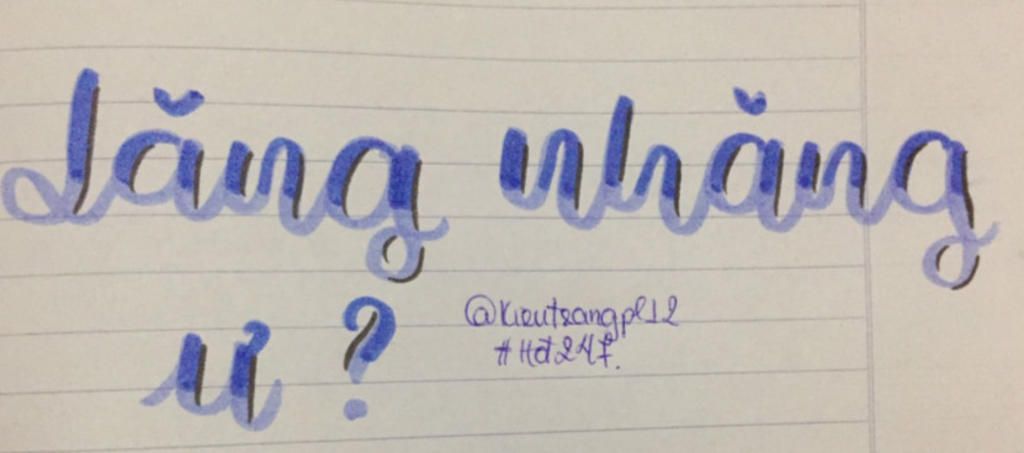 Lăng nhăng
ư ?
@Kieutrangpl12
#Hđ247.